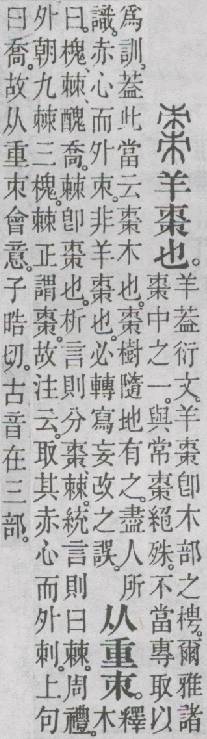 棗羊棗也。
羊葢衍文。羊棗卽木部之梬。爾雅諸
棗中之一。與常棗絕殊。不當專取以
爲訓。葢此當云棗木也。棗樹隨地有之。盡人所
識。赤心而外朿。非羊棗也。必轉寫妄改之誤。
从重朿。
釋
木
曰。槐棘醜喬。棘卽棗也。析言則分棗棘。統言則曰棘。周禮。
外朝九棘三槐。棘正謂棗。故注云。取其赤心而外刺。上句
曰喬。故从重朿會意。子晧切。古音在三部。